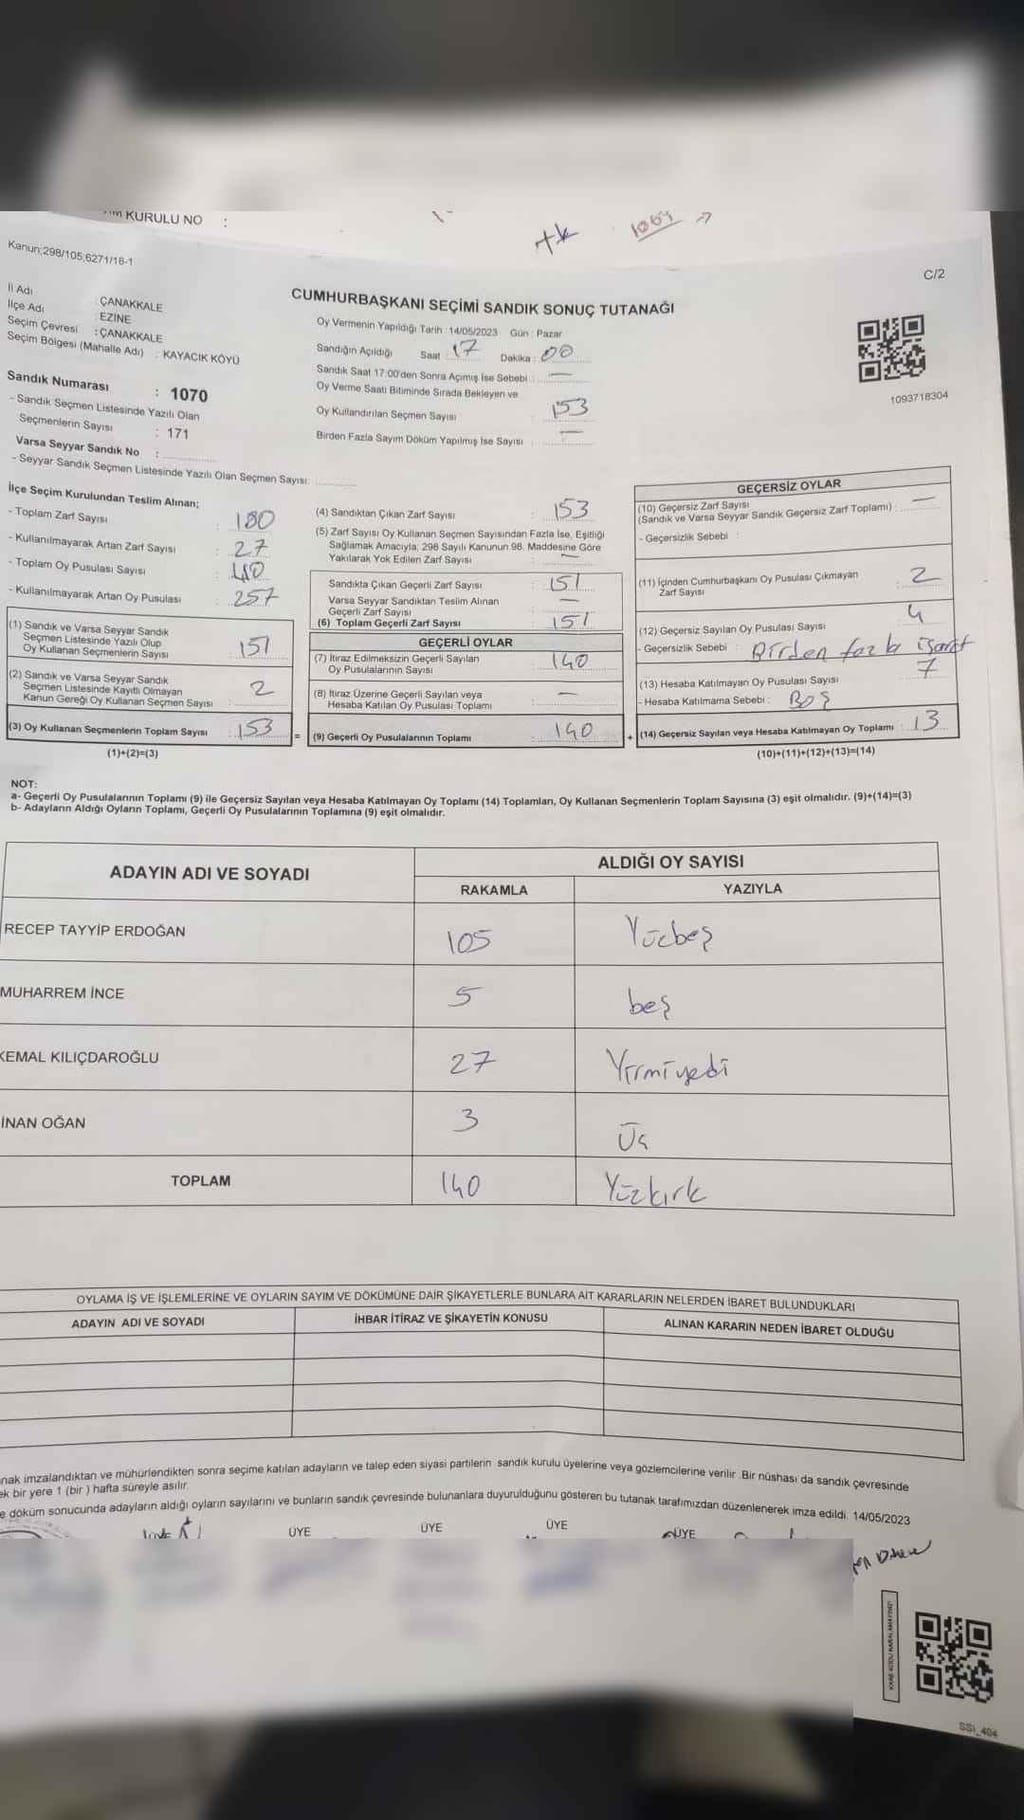 KURULU NO :
tk
1069 →
Kanun;298/105,6271/16-1
C/2
İl Adı ÇANAKKALE
İlçe Adı EZİNE
Seçim Çevresi : ÇANAKKALE
Seçim Bölgesi (Mahalle Adı) : KAYACIK KÖYÜ
Sandık Numarası : 1070
- Sandık Seçmen Listesinde Yazılı Olan
Seçmenlerin Sayısı : 171
Varsa Seyyar Sandık No :
- Seyyar Sandık Seçmen Listesinde Yazılı Olan Seçmen Sayısı:
CUMHURBAŞKANI SEÇİMİ SANDIK SONUÇ TUTANAĞI
Oy Vermenin Yapıldığı Tarih : 14/05/2023 Gün : Pazar
Sandığın Açıldığı Saat : 17 Dakika : 00
Sandık Saat 17:00'den Sonra Açımış İse Sebebi : —
Oy Verme Saati Bitiminde Sırada Bekleyen ve
Oy Kullandırılan Seçmen Sayısı : 153
Birden Fazla Sayım Döküm Yapılmış İse Sayısı : —
1093718304
İlçe Seçim Kurulundan Teslim Alınan;
- Toplam Zarf Sayısı : 180
- Kullanılmayarak Artan Zarf Sayısı : 27
- Toplam Oy Pusulası Sayısı : 410
- Kullanılmayarak Artan Oy Pusulası : 257
(1) Sandık ve Varsa Seyyar Sandık
Seçmen Listesinde Yazılı Olup
Oy Kullanan Seçmenlerin Sayısı 151
(2) Sandık ve Varsa Seyyar Sandık
Seçmen Listesinde Kayıtlı Olmayan
Kanun Gereği Oy Kullanan Seçmen Sayısı 2
(3) Oy Kullanan Seçmenlerin Toplam Sayısı : 153 =
(1)+(2)=(3)
(4) Sandıktan Çıkan Zarf Sayısı : 153
(5) Zarf Sayısı Oy Kullanan Seçmen Sayısından Fazla İse, Eşitliği
Sağlamak Amacıyla, 298 Sayılı Kanunun 98. Maddesine Göre
Yakılarak Yok Edilen Zarf Sayısı : —
Sandıkta Çıkan Geçerli Zarf Sayısı : 151
Varsa Seyyar Sandıktan Teslim Alınan
Geçerli Zarf Sayısı : —
(6) Toplam Geçerli Zarf Sayısı : 151
GEÇERLİ OYLAR
(7) İtiraz Edilmeksizin Geçerli Sayılan
Oy Pusulalarının Sayısı : 140
(8) İtiraz Üzerine Geçerli Sayılan veya
Hesaba Katılan Oy Pusulası Toplamı : —
(9) Geçerli Oy Pusulalarının Toplamı : 140 +
GEÇERSİZ OYLAR
(10) Geçersiz Zarf Sayısı
(Sandık ve Varsa Seyyar Sandık Geçersiz Zarf Toplamı) : —
- Geçersizlik Sebebi :
(11) İçinden Cumhurbaşkanı Oy Pusulası Çıkmayan
Zarf Sayısı : 2
(12) Geçersiz Sayılan Oy Pusulası Sayısı : 4
- Geçersizlik Sebebi : Birden fazla işaret
(13) Hesaba Katılmayan Oy Pusulası Sayısı : 7
- Hesaba Katılmama Sebebi : BOŞ
(14) Geçersiz Sayılan veya Hesaba Katılmayan Oy Toplamı : 13
(10)+(11)+(12)+(13)=(14)
NOT:
a- Geçerli Oy Pusulalarının Toplamı (9) ile Geçersiz Sayılan veya Hesaba Katılmayan Oy Toplamı (14) Toplamları, Oy Kullanan Seçmenlerin Toplam Sayısına (3) eşit olmalıdır. (9)+(14)=(3)
b- Adayların Aldığı Oyların Toplamı, Geçerli Oy Pusulalarının Toplamına (9) eşit olmalıdır.
ADAYIN ADI VE SOYADI
ALDIĞI OY SAYISI
RAKAMLA YAZIYLA
RECEP TAYYİP ERDOĞAN 105 Yüzbeş
MUHARREM İNCE 5 beş
KEMAL KILIÇDAROĞLU 27 Yirmiyedi
İNAN OĞAN 3 Üç
TOPLAM 140 Yüzkırk
OYLAMA İŞ VE İŞLEMLERİNE VE OYLARIN SAYIM VE DÖKÜMÜNE DAİR ŞİKAYETLERLE BUNLARA AİT KARARLARIN NELERDEN İBARET BULUNDUKLARI
ADAYIN ADI VE SOYADI İHBAR İTİRAZ VE ŞİKAYETİN KONUSU ALINAN KARARIN NEDEN İBARET OLDUĞU
nak imzalandıktan ve mühürlendikten sonra seçime katılan adayların ve talep eden siyasi partilerin sandık kurulu üyelerine veya gözlemcilerine verilir. Bir nüshası da sandık çevresinde
ek bir yere 1 (bir) hafta süreyle asılır.
e döküm sonucunda adayların aldığı oyların sayılarını ve bunların sandık çevresinde bulunanlara duyurulduğunu gösteren bu tutanak tarafımızdan düzenlenerek imza edildi. 14/05/2023
ÜYE ÜYE ÜYE ÜYE
SSİ_404